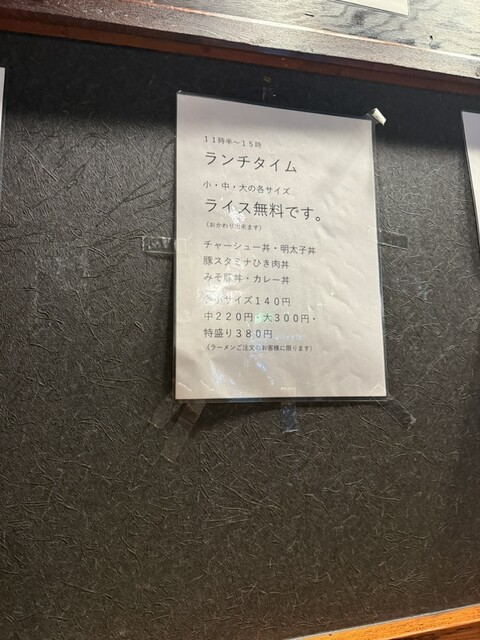 １１時半～１５時
ランチタイム
小・中・大の各サイズ
ライス無料です。
（おかわり出来ます）
チャーシュー丼・明太子丼
豚スタミナひき肉丼
みそ豚丼・カレー丼
各小サイズ１４０円
中２２０円・大３００円・
特盛り３８０円
（ラーメンご注文のお客様に限ります）